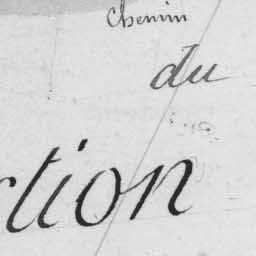 Chemin
du
ction